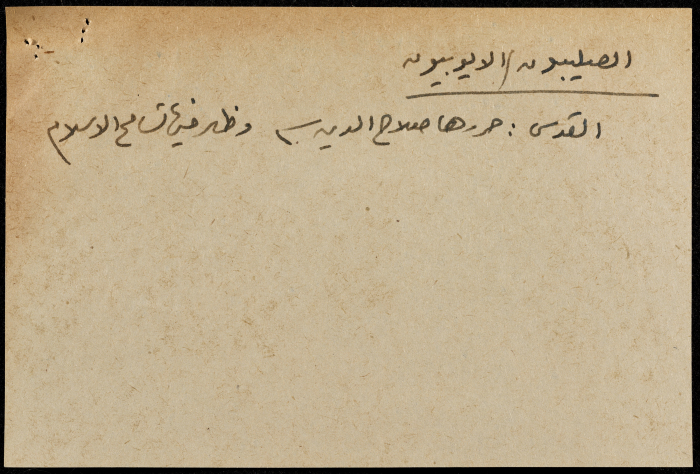 الصليبيون/الايوبيون
القدس : حررها صلاح الدين وظهر فيها تسامح الاسلام